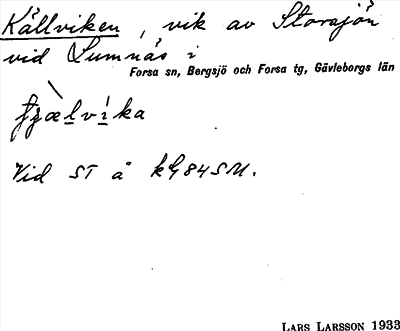 Källviken, vik av Storsjön
vid Lumnäs i
Forsa sn, Bergsjö och Forsa tg, Gävleborgs län
Vid ST å kG84SM.
LARS LARSSON 1933